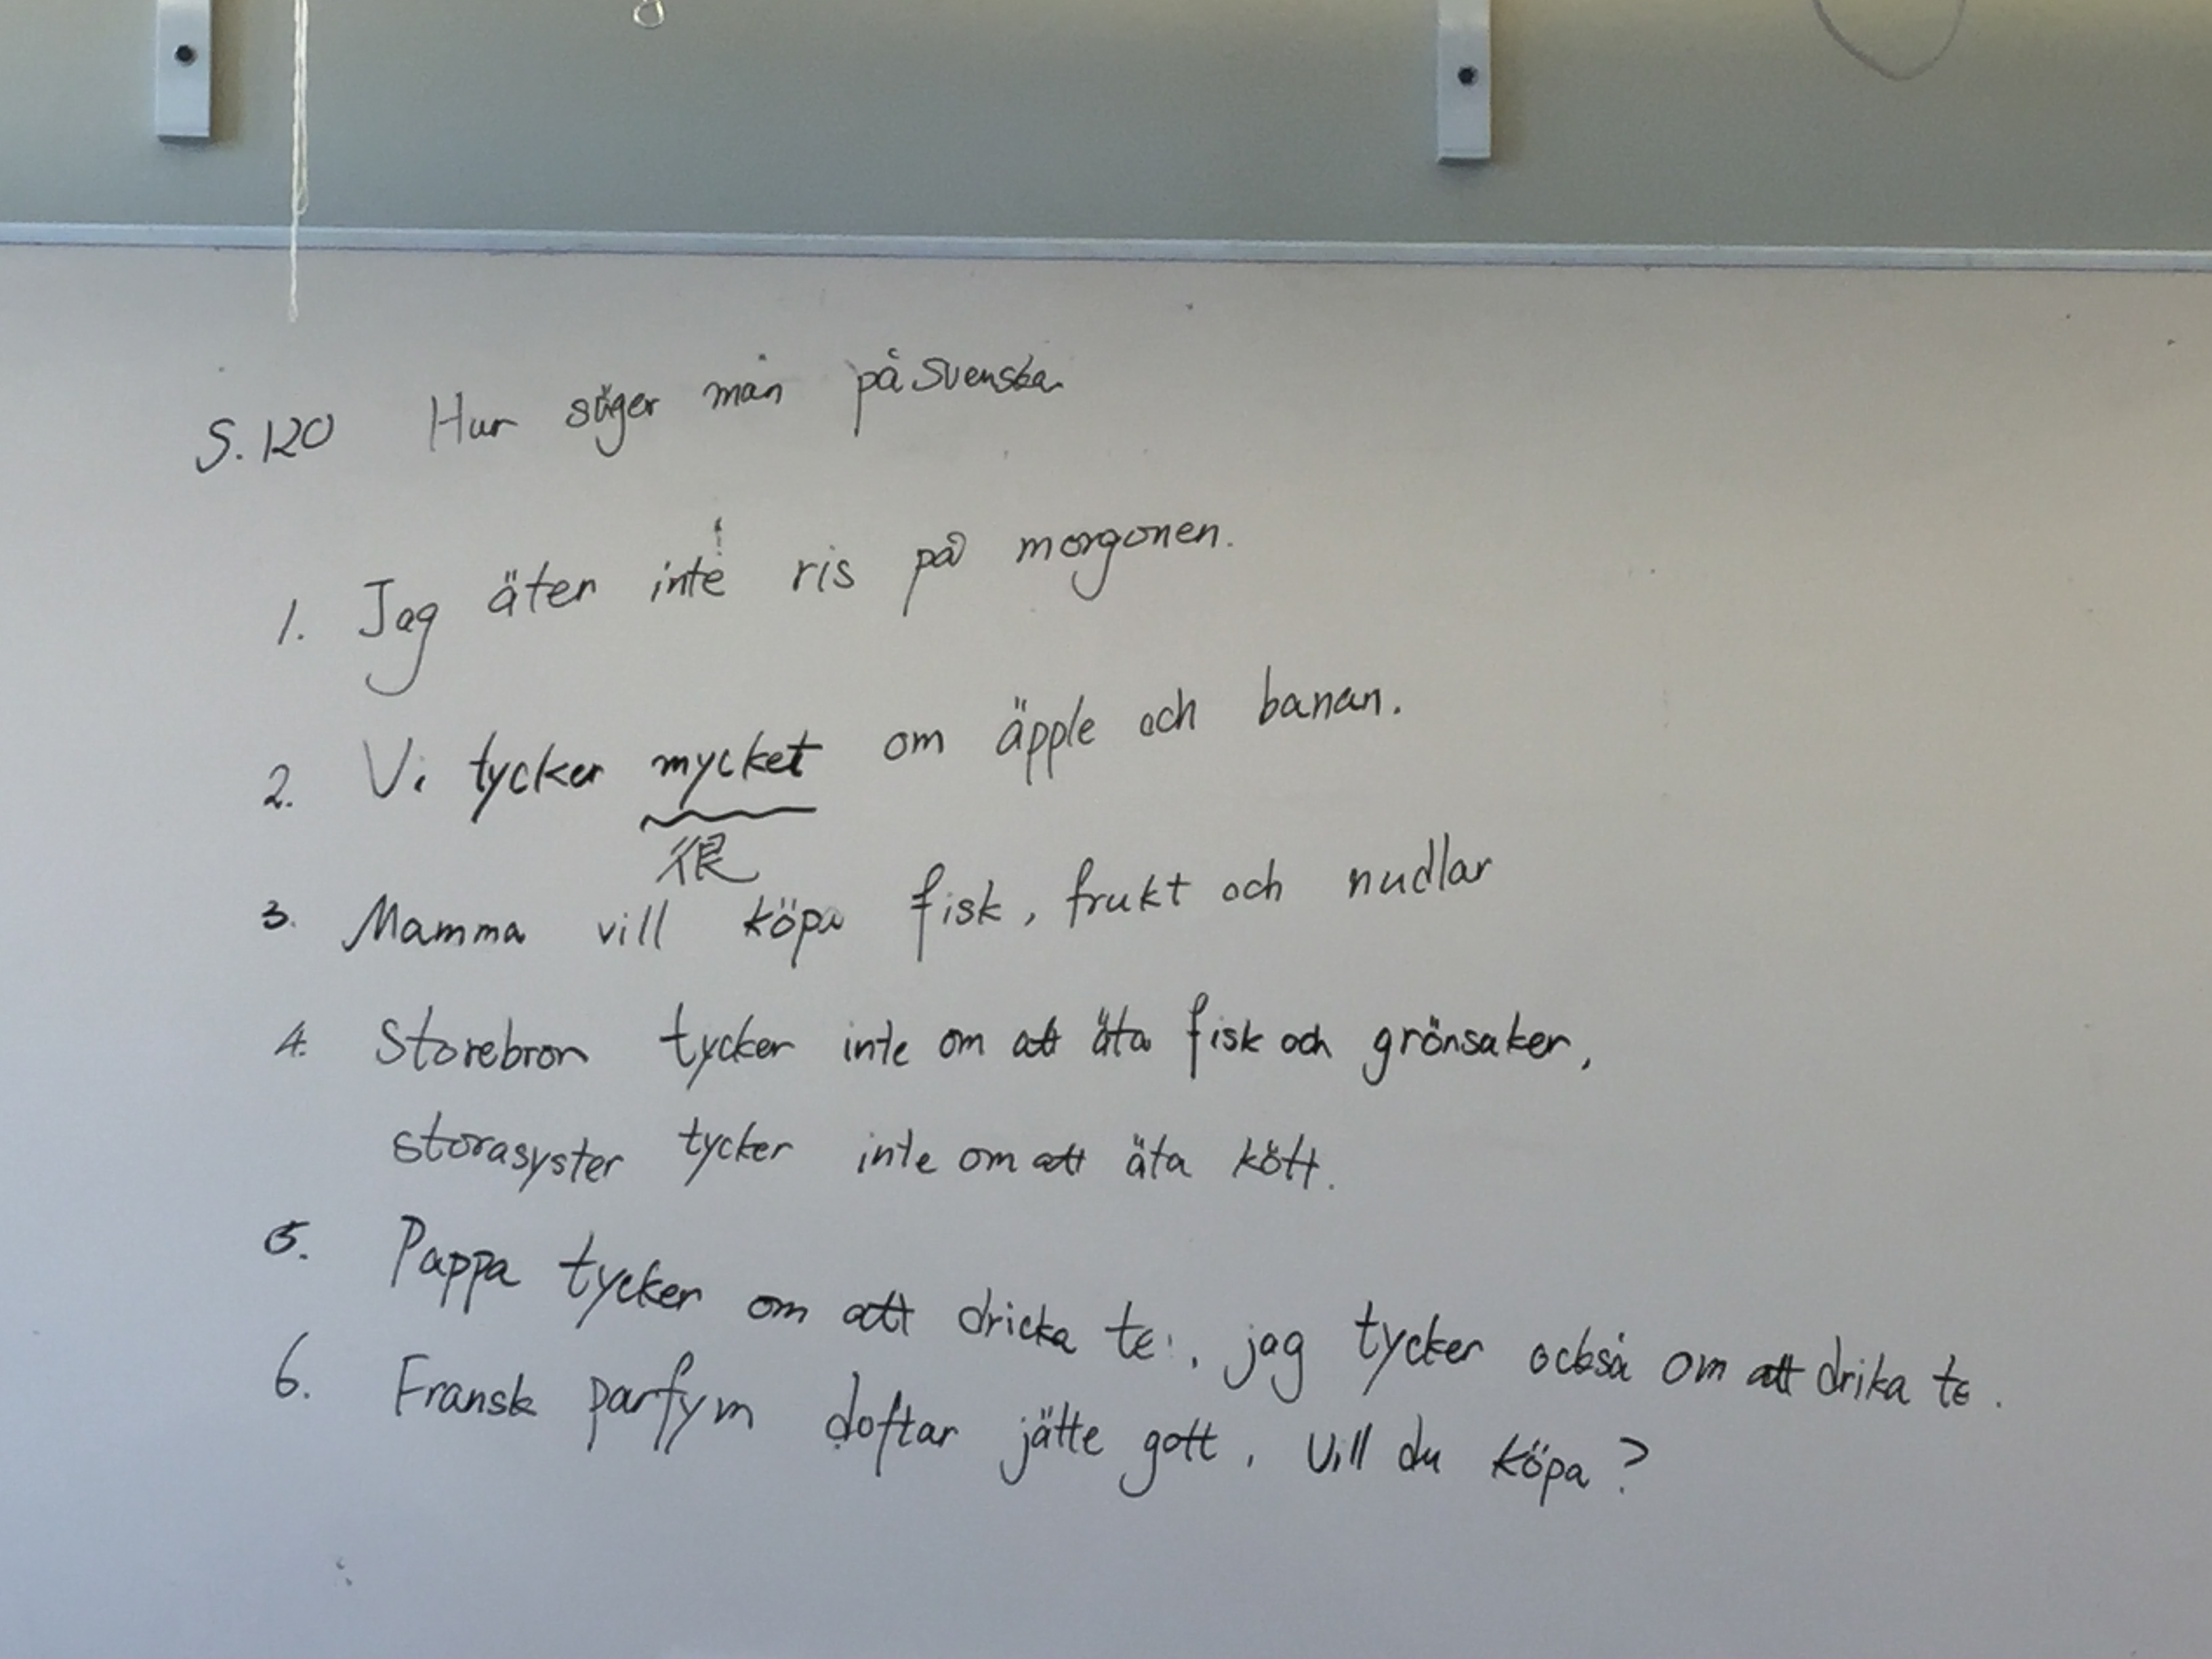 S. 120 Hur säger man på svenska
1. Jag äter inte ris på morgonen.
2. Vi tycker mycket om äpple och banan.
很
3. Mamma vill köpa fisk, frukt och nudlar
4. Storebror tycker inte om att äta fisk och grönsaker,
storasyster tycker inte om att äta kött.
5. Pappa tycker om att dricka te, jag tycker också om att drika te.
6. Fransk parfym doftar jätte gott, Vill du köpa?